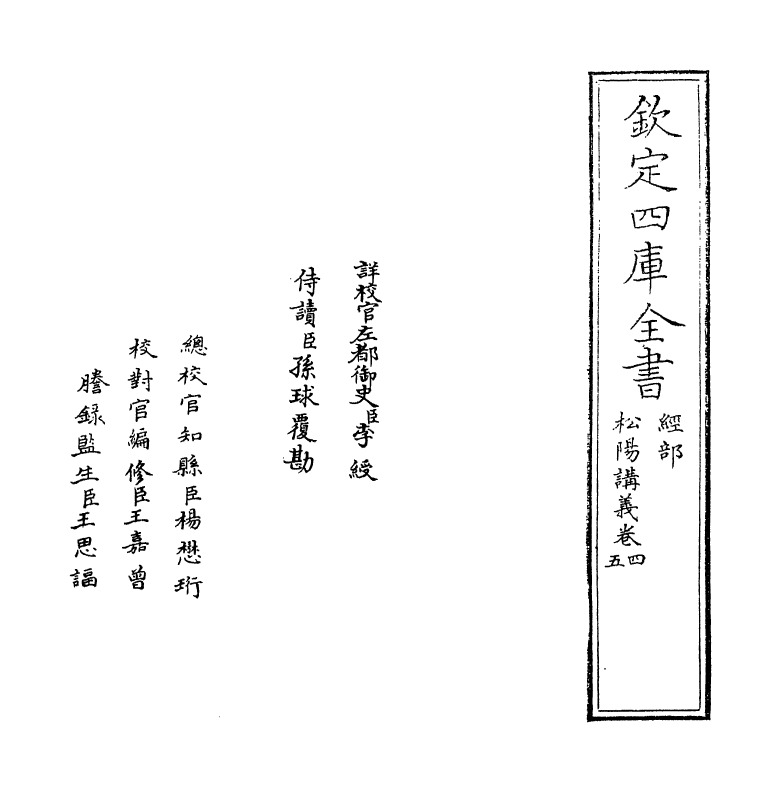 欽定四庫全書
經部
松陽講義卷四五
詳校官左都御史臣李綬
侍讀臣孫球覆勘
總校官知縣臣楊懋珩
校對官編修臣王嘉曾
謄錄監生臣王思謳